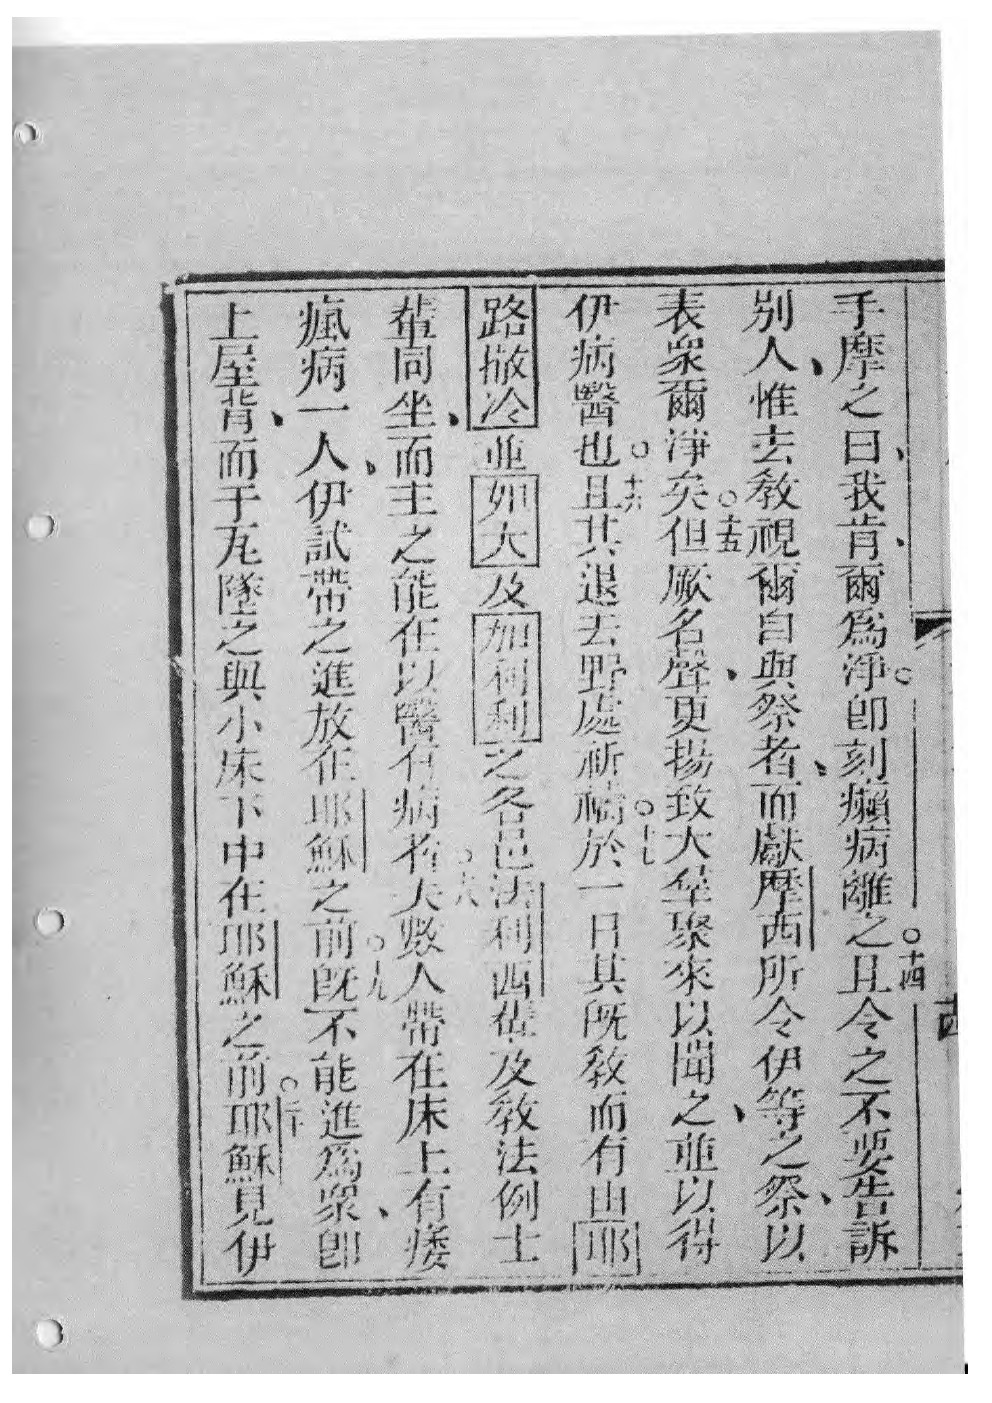 手摩之曰我肯爾爲淨即刻癩病離之十四且令之不要告訴
別人惟去敎視爾自與祭者而獻摩西所令伊等之祭以
表衆爾淨矣十五但厥名聲更揚致大羣聚來以聞之並以得
伊病醫也十六且其退去野處祈禱十七於一日其旣敎而有由耶
路撒冷並如大及加利利之各邑法利西輩及敎法例士
輩同坐而主之能在以醫有病者十八夫數人帶在床上有痿
瘋病一人伊試帶之進放在耶穌之前十九旣不能進爲衆卽
上屋背而于瓦墜之與小床下中在耶穌之前二十耶穌見伊